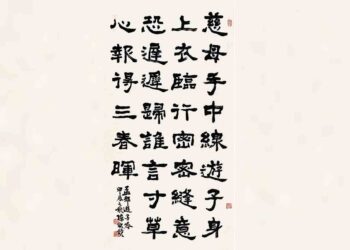 慈母手中線遊子身
上衣臨行密密縫意
恐遲遲歸誰言寸草
心報得三春暉
孟郊遊子吟
甲辰